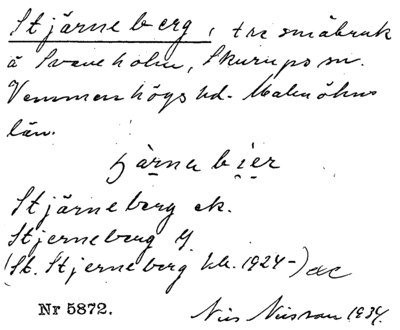 Stjärneberg, tre småbruk
å Svaneholm, Skurups sn.
Vemmenhögs hd. Malmöhus
län.
bier
Stjärneberg ek.
Stjerneberg
(St. Stjerneberg kb. 1924-)
Nr 5872. Nils Nilsson 1934.